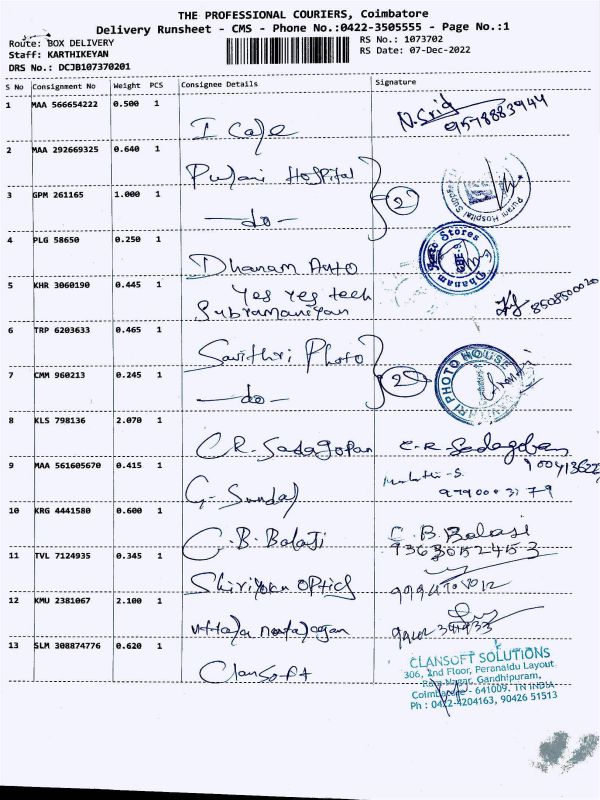 THE PROFESSIONAL COURIERS, Coimbatore
Delivery Runsheet - CMS - Phone No.:0422-3505555 - Page No.:1
Route: BOX DELIVERY
RS No.: 1073702
Staff: KARTHIKEYAN
RS Date: 07-Dec-2022
DRS No.: DCJB107370201
S No Consignment No Weight PCS Consignee Details Signature
1 MAA 566654222 0.500 1
I Cafe
9578883944
2 MAA 292669325 0.640 1
Purani Hospital
3 GPM 261165 1.000 1
-do-
2
Purani Hospital
4 PLG 58650 0.250 1
Dhanam Auto
Dhanam Auto Stores
CBE-9
5 KHR 3060190 0.445 1
Yes Yes tech
Subramaniyan
8508500020
6 TRP 6203633 0.465 1
Savithri Photo
7 CMM 960213 0.245 1
-do-
2
PHOTO HOUSE
8 KLS 798136 2.070 1
C.R. Sadagopan
C.R. Sadagopan
9 MAA 561605670 0.415 1
G. Sundar
10 KRG 4441580 0.600 1
C.B. Balaji
C.B. Balaji
9363052453
11 TVL 7124935 0.345 1
optics
12 KMU 2381067 2.100 1
13 SLM 308874776 0.620 1
Clansoft
CLANSOFT SOLUTIONS
306, 2nd Floor, Peranaidu Layout
Nagar, Gandhipuram,
Coimbatore - 641009. TN INDIA
Ph : 0422-4204163, 90426 51513